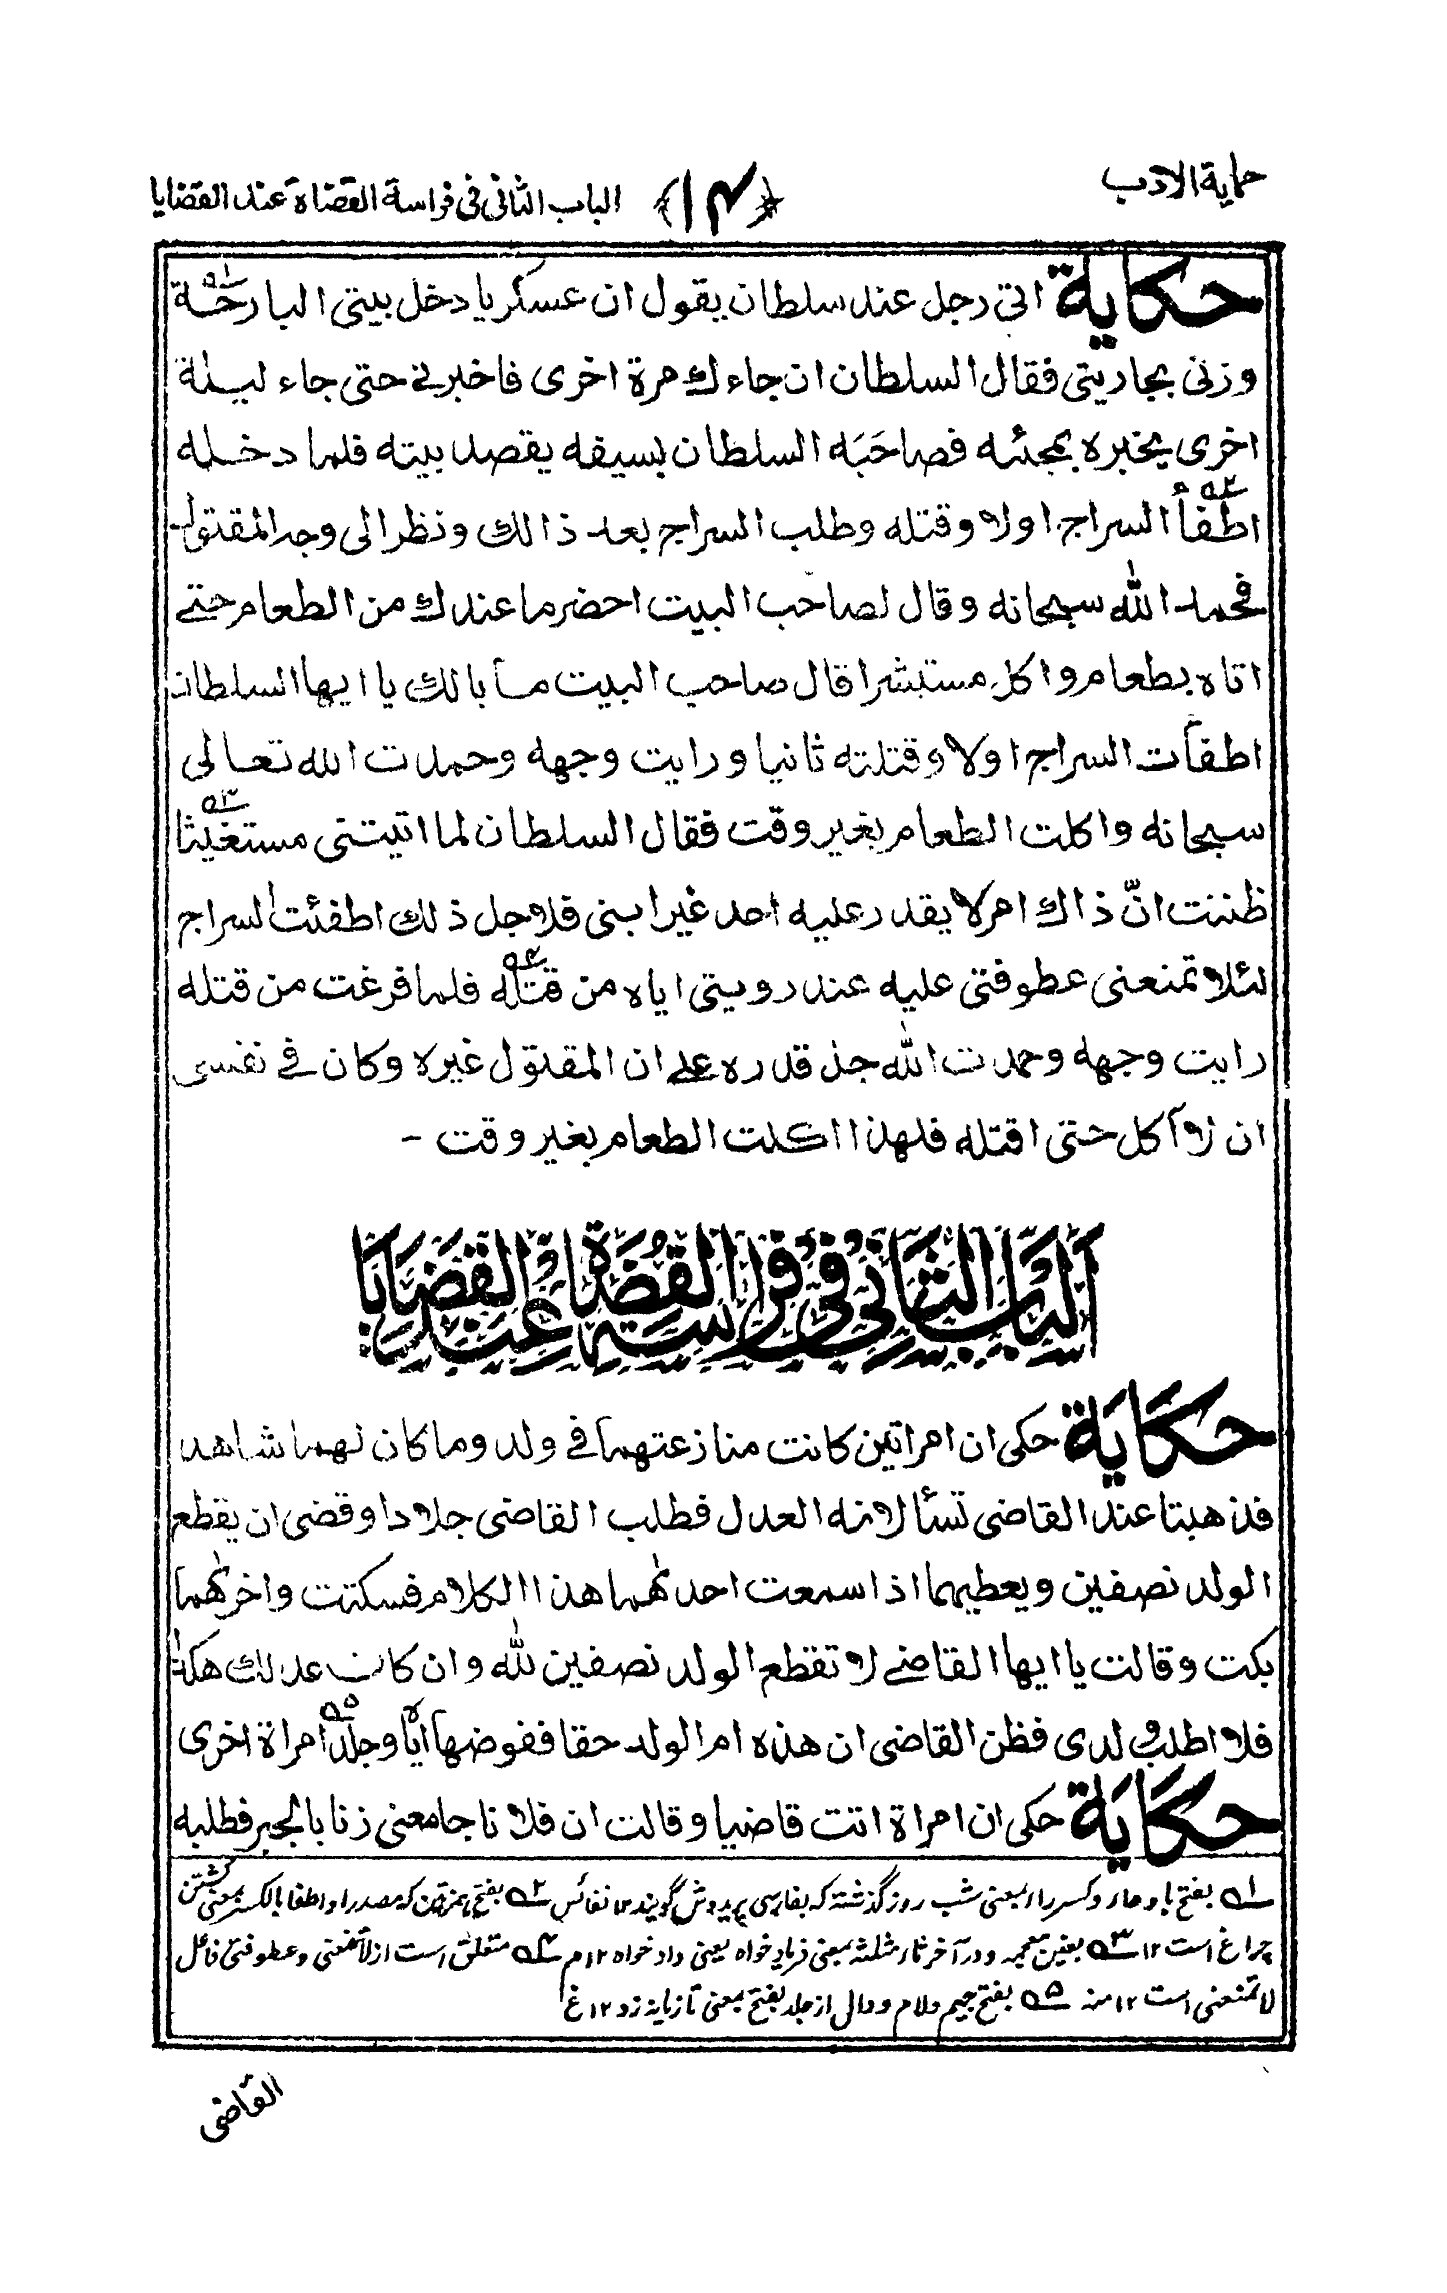 حماية الادب
﴿۱۴﴾
الباب الثانی فی فراسة القضاة عند القضایا
حکایة اتی رجل عند سلطان یقول ان عسکریا دخل بیتی البارحة
وزنی بجاریتی فقال السلطان ان جاءك مرة اخری فاخبرنی حتی جاء لیلة
اخری یخبره بمجئه فصاحَبَه السلطان بسیفه یقصد بیته فلما دخله
اطفأ السراج اولا وقتله وطلب السراج بعد ذالك ونظر الی وجه المقتول
فحمد الله سبحانه وقال لصاحب البیت احضر ما عندك من الطعام حتے
اتاه بطعام واکل مستبشرا قال صاحب البیت ما بالك یا ایها السلطان
اطفأت السراج اولا وقتلته ثانیا ورایت وجهه وحمدت الله تعالی
سبحانه واکلت الطعام بغیر وقت فقال السلطان لما اتیتنی مستغیثا
ظننت انّ ذاك امر لا یقدر علیه احد غیر ابنی فلاجل ذلك اطفئت السراج
لئلا تمنعنی عطوفتی علیه عند رویتی ایاه من قتله فلما فرغت من قتله
رایت وجهه وحمدت الله جذ قدره علے ان المقتول غیره وکان فے نفسی
ان لا آکل حتی اقتله فلهذا اکلت الطعام بغیر وقت -
الباب الثانی فی فراسة القضاة عند القضایا
حکایة حکی ان امراتین کانت منازعتهما فے ولد وما کان لهما شاهد
فذهبتا عند القاضی تسألانه العدل فطلب القاضی جلادا وقضی ان یقطع
الولد نصفین ویعطیهما اذا سمعت احدٰهما هذا الکلام فسکتت واخرٰهما
بکت وقالت یا ایها القاضے لا تقطع الولد نصفین لله وان کان عدلك هکذا
فلا اطلب ولدی فظن القاضی ان هذه ام الولد حقا ففوضها ایاه وجلد امراة اخری
حکایة حکی ان امراة اتت قاضیا وقالت ان فلانا جامعنی زنا بالجبر فطلبه
۱ بفتح با وحا، وکسر را ا بمعنی شب روز گذشته که بفارسی پریدوش گویند ۱۲ نفائس ۲ بفتح همزتین که مصدر او اطفا بالکسر بمعنی کشتن
چراغ است ۱۲ ۳ بغین معجمه ودر آخر ثاء مثلثه بمعنی فریاد خواه یعنی داد خواه ۱۲ م ۴ متعلق است از لا تمنعنی وعطوفتی فاعل
لا تمنعنی است ۱۲ منه ۵ بفتح جیم ولام ودال از جلد بفتح بمعنی تازیانه زد ۱۲ غ
القاضی